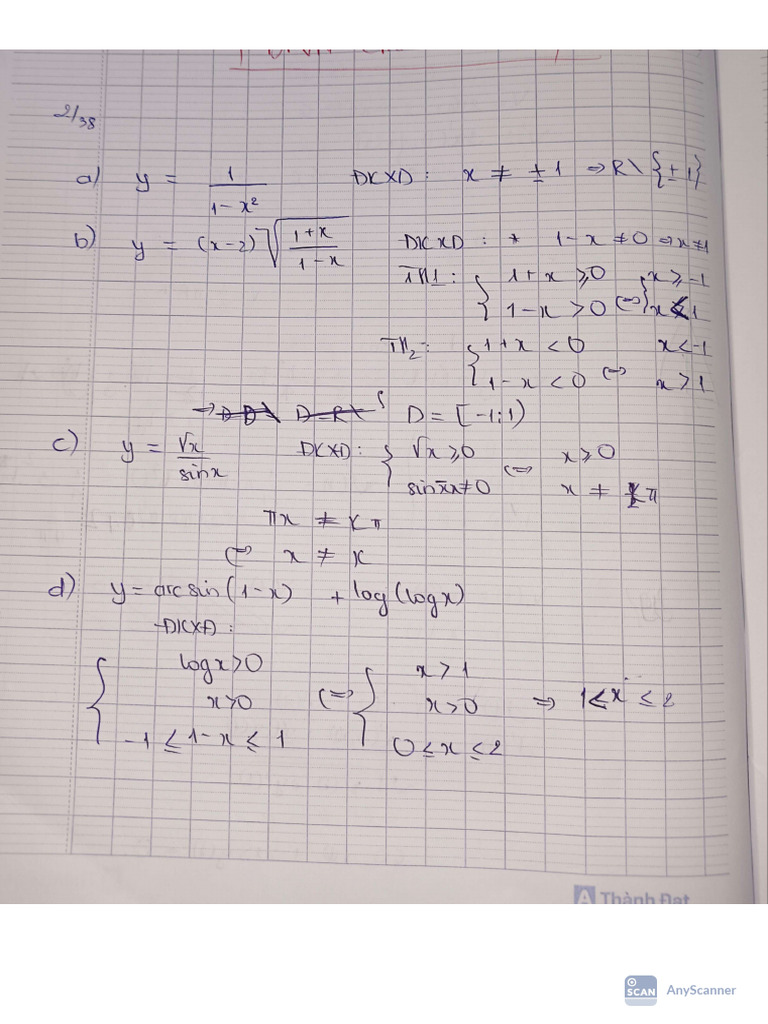 2/38
a) y = 1/(1-x²) ĐKXĐ: x ≠ ±1 ⇒ R\{±1}
b) y = (x-2)√((1+x)/(1-x)) ĐKXĐ: * 1-x ≠ 0 ⇒ x ≠ 1
TH1: { 1+x ≥ 0 { x ≥ -1
1-x > 0 ⇔ x < 1
TH2: { 1+x < 0 x < -1
1-x < 0 ⇔ x > 1
⇒ D = [-1;1)
c) y = √x/sinx ĐKXĐ: { √x ≥ 0 ⇔ x ≥ 0
sinπx ≠ 0 x ≠ π
πx ≠ Kπ
⇔ x ≠ K
d) y = arcsin(1-x) + log(logx)
ĐKXĐ:
{ logx > 0 ⇔ { x > 1
x > 0 x > 0 ⇒ 1 ≤ x ≤ 2
-1 ≤ 1-x ≤ 1 0 ≤ x ≤ 2
A Thành Đạt
SCAN AnyScanner